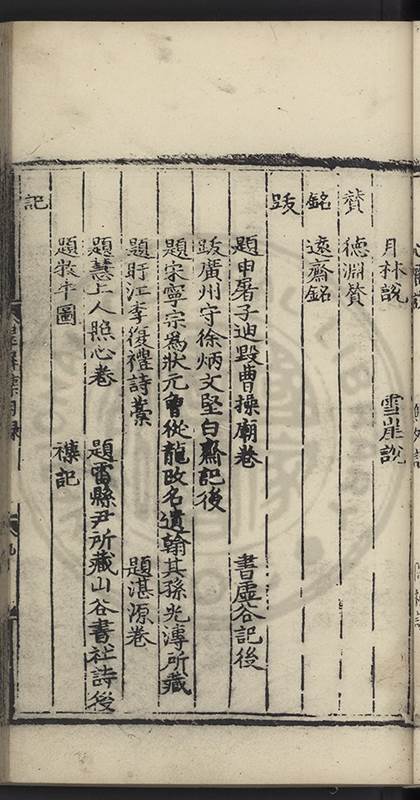 月林說　雪崖說
贊
德淵贊
銘
遠齋銘
跋
題申屠子迪毀曹操廟卷　書虛谷記後
跋廣州守徐炳文堅白齋記後
題宋寧宗為狀元曾從龍改名遺翰其孫光溥所藏
題盱江李復禮詩藁　題湛源卷
題慧上人照心卷　題雷縣尹所藏山谷書社詩後
題牧牛圖　禱記
記